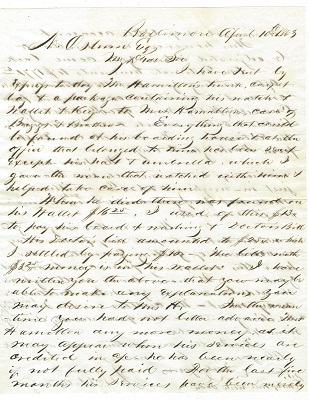 Baltimore April 10 1863
My Dear Sir
I have sent by
Express to day Mr Hamilton's trunk, carpet
bag & a package containing his watch &
Wallet & Keys to Mrs Hamilton, care of
Everything that could
be found at his boarding house & at the
Office that belonged to him has been sent
except his hat & umbrella, which I
gave the man that watched with him &
helped take care of him.
When he died there was found in
his Wallet I used of this
to pay his board & washing & Doctors Bill
His Doctors bill amounted to
I settled by paying The balance
money is in his Wallet. I have
written you the above that you may be
able to make any explanations you
may desire to Mrs H. In the mean
time you had not better advance Mrs
Hamilton any more money, as it
may appear when his services are
credited in a/c he has been nearly
if not fully paid - For the last five
months his services have been merely